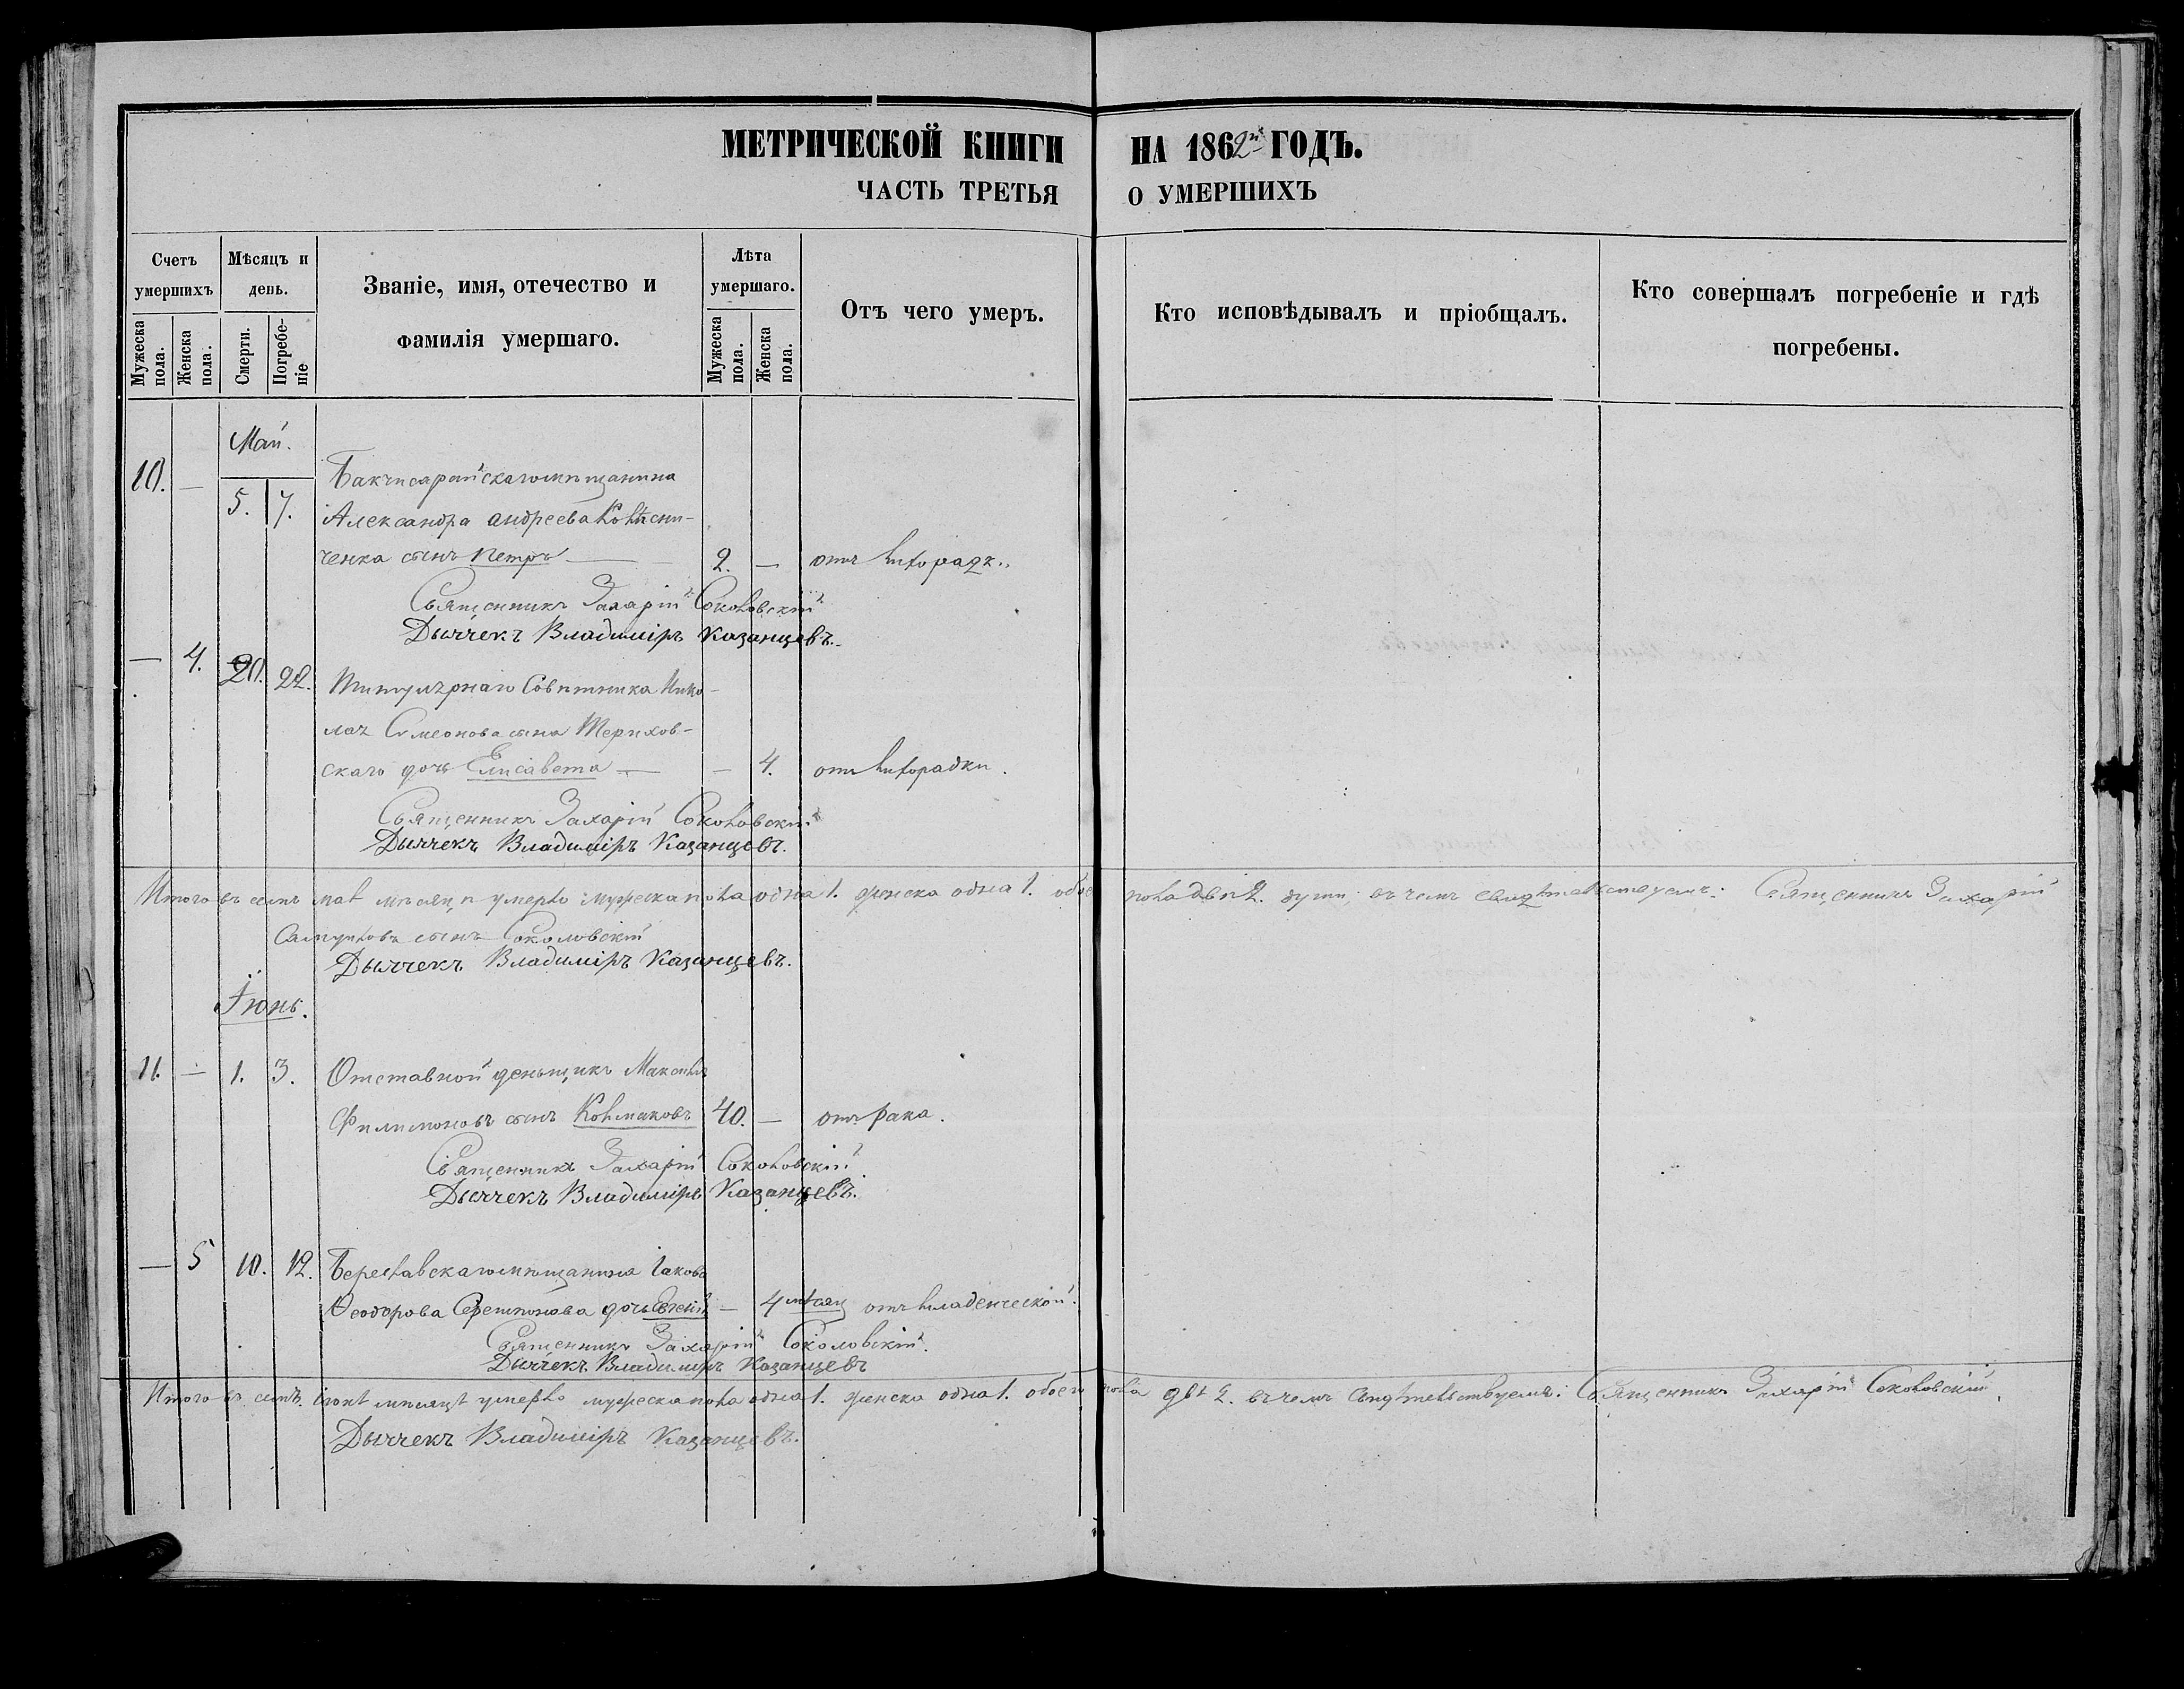 МЕТРИЧЕСКОЙ КНИГИ НА 1862й ГОДЪ.
ЧАСТЬ ТРЕТЬЯ О УМЕРШИХЪ
Счетъ умершихъ
Мужеска пола.
Женска пола.
Мѣсяцъ и день.
Смерти.
Погребеніе
Званіе, имя, отечество и фамилія умершаго.
Лѣта умершаго.
Мужеска пола.
Женска пола.
Отъ чего умеръ.
Кто исповѣдывалъ и пріобщалъ.
Кто совершалъ погребеніе и гдѣ погребены.
Май.
10. — 5. 7. Бакчисарайскаго мѣщанина
Александра Андреева Колѣсни-
ченка сынъ Петръ — 2. — отъ лихорадк.
Священникъ Захарій Соколовскій
Дьячекъ Владиміръ Казанцевъ.
— 4. 20. 22. Титулярнаго Совѣтника Нико-
лая Симеонова сына Терихов-
скаго дочь Елисавета — — 4. отъ лихорадки.
Священникъ Захарій Соколовскій
Дьячекъ Владиміръ Казанцевъ.
Итого въ семъ маѣ мѣсяцѣ умерло мужеска пола одна 1. женска одна 1. обоего пола двѣ 2. души; въ чемъ свидѣтельствуемъ: Священникъ Захарій
Самуиловъ сынъ Соколовскій
Дьячекъ Владиміръ Казанцевъ.
Іюнь.
11. — 1. 3. Отставной деньщикъ Максимъ
Филимоновъ сынъ Колмаковъ 40. — отъ рака.
Священникъ Захарій Соколовскій
Дьячекъ Владиміръ Казанцевъ.
— 5 10. 12. Береславскаго мѣщанина Іакова
Ѳеодорова дочь — 4 мѣсяц отъ младенческой.
Священникъ Захарій Соколовскій.
Дьячекъ Владиміръ Казанцевъ
Итого въ семъ іюнѣ мѣсяцѣ умерло мужеска пола одна 1. женска одна 1. обоего пола двѣ 2. въ чемъ свидѣтельствуемъ: Священникъ Захарій Соколовскій.
Дьячекъ Владиміръ Казанцевъ.